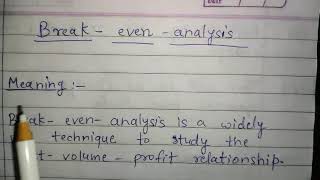 Break - even - analysis
Meaning :-
Break - even - analysis is a widely
technique to study the
volume - profit relationship.